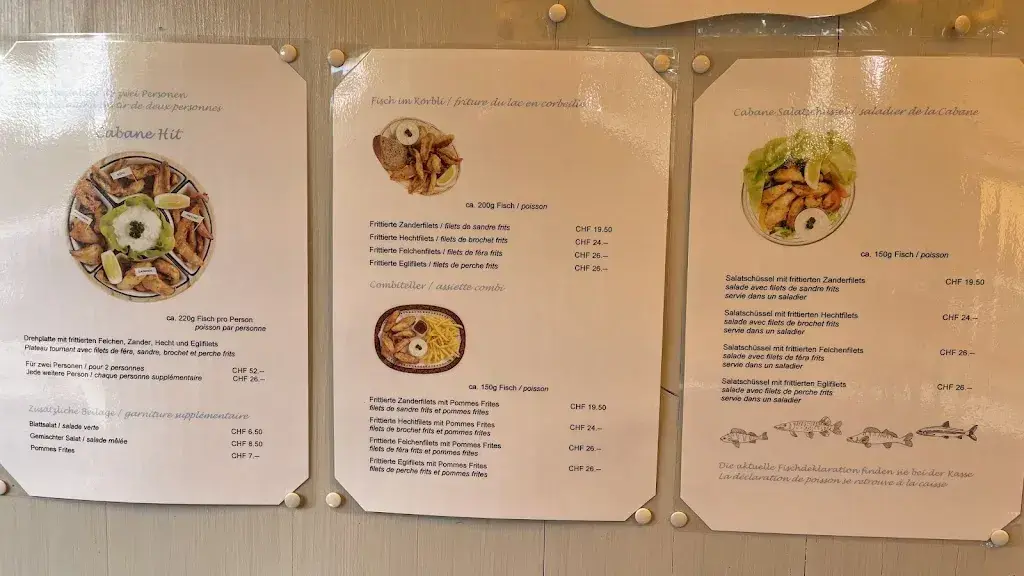 zwei Personen
de deux personnes
Cabane Hit
ca. 220g Fisch pro Person
poisson par personne
Drehplatte mit frittierten Felchen, Zander, Hecht und Eglifilets
Plateau tournant avec filets de féra, sandre, brochet et perche frits
Für zwei Personen / pour 2 personnes CHF 52.–
Jede weitere Person / chaque personne supplémentaire CHF 26.–
Zusätzliche Beilage / garniture supplémentaire
Blattsalat / salade verte CHF 6.50
Gemischter Salat / salade mêlée CHF 8.50
Pommes Frites CHF 7.–
Fisch im Körbli / friture du lac en corbeille
ca. 200g Fisch / poisson
Frittierte Zanderfilets / filets de sandre frits CHF 19.50
Frittierte Hechtfilets / filets de brochet frits CHF 24.–
Frittierte Felchenfilets / filets de féra frits CHF 26.–
Frittierte Eglifilets / filets de perche frits CHF 26.–
Combiteller / assiette combi
ca. 150g Fisch / poisson
Frittierte Zanderfilets mit Pommes Frites CHF 19.50
filets de sandre frits et pommes frites
Frittierte Hechtfilets mit Pommes Frites CHF 24.–
filets de brochet frits et pommes frites
Frittierte Felchenfilets mit Pommes Frites CHF 26.–
filets de féra frits et pommes frites
Frittierte Eglifilets mit Pommes Frites CHF 26.–
filets de perche frits et pommes frites
Cabane Salatschüssel / saladier de la Cabane
ca. 150g Fisch / poisson
Salatschüssel mit frittierten Zanderfilets CHF 19.50
salade avec filets de sandre frits
servie dans un saladier
Salatschüssel mit frittierten Hechtfilets CHF 24.–
salade avec filets de brochet frits
servie dans un saladier
Salatschüssel mit frittierten Felchenfilets CHF 26.–
salade avec filets de féra frits
servie dans un saladier
Salatschüssel mit frittierten Eglifilets CHF 26.–
salade avec filets de perche frits
servie dans un saladier
Die aktuelle Fischdeklaration finden sie bei der Kasse
La déclaration de poisson se retrouve à la caisse